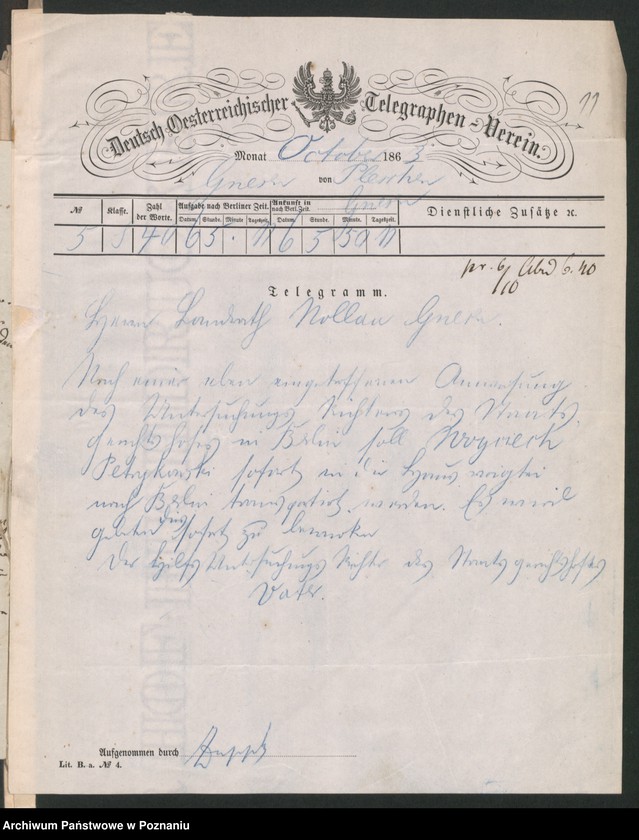 11
Deutsch-Oesterreichischer Telegraphen-Verein.
Monat October 1863
Gnesen von Pleschen
Gnesen
No Klasse. Zahl der Worte. Aufgabe nach Berliner Zeit. Ankunft in nach Berl. Zeit. Dienstliche Zusätze ꝛc.
Datum Stunde. Minute Tageszeit. Datum. Stunde. Minute. Tageszeit.
5 S 40 6 5 . N 6 5 50 N
pr. 6/10 Abd 6. 40
Telegramm.
Herrn Landrath Nollau Gnesen.
Nach einer eben eingetroffenen Anweisung
des Untersuchungs Richters des Staats
gerichtshofes in Berlin soll Woyciech
Petrykowski sofort in die Hausvoigtei
nach Berlin transportirt werden. Es wird
gebeten dies sofort zu bewirken
Der Hilfs Untersuchungs Richter des Staatsgerichtshofes
Vater.
Aufgenommen durch
Lit. B. a. No 4.
Archiwum Państwowe w Poznaniu